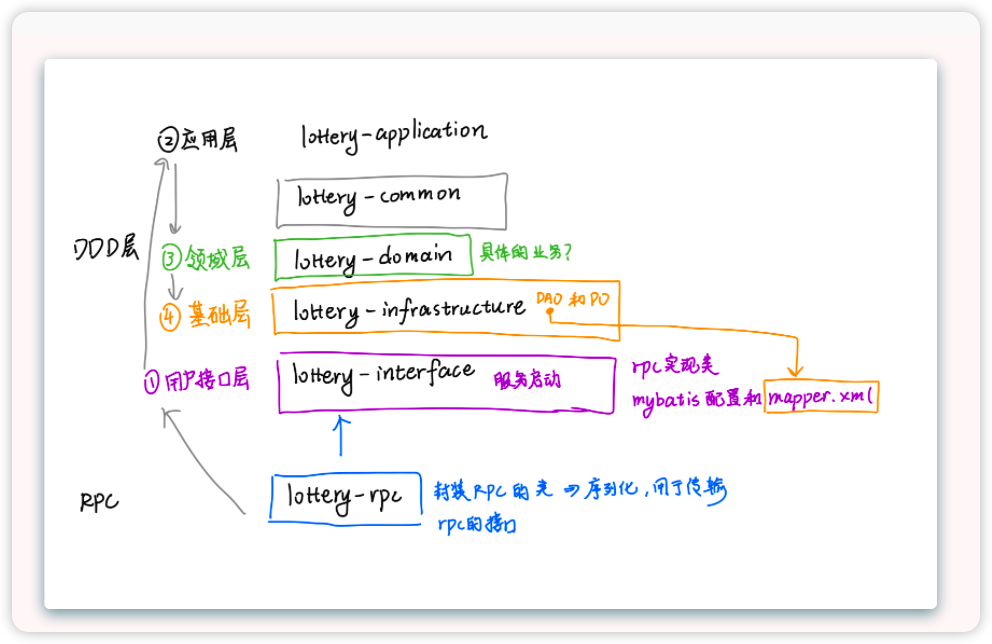 ②应用层 lottery-application
lottery-common
DDD层
③领域层 lottery-domain 具体的业务?
④基础层 lottery-infrastructure DAO和PO
①用户接口层 lottery-interface 服务启动
rpc实现类
mybatis配置和mapper.xml
RPC
lottery-rpc 封装RPC的类⇒序列化,用于传输
rpc的接口